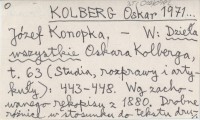 KOLBERG Oskar 1971...
Józef Konopka, - W: Dzieła
wszystkie Oskara Kolberga,
t. 63 (Studia, rozprawy i arty-
kuły): 443-448. Wg zacho-
wanego rękopisu z 1880. Drobne
różnice w stosunku do tekstu dru-